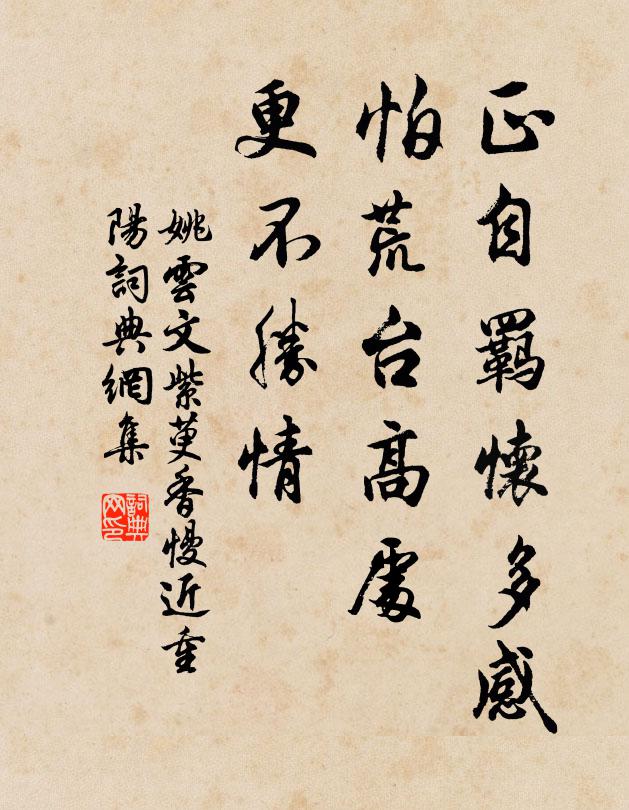 正自羈懷多感
怕荒台高處
更不勝情
姚雲文紫萸香慢近重
陽詞典網集
詞典
网印